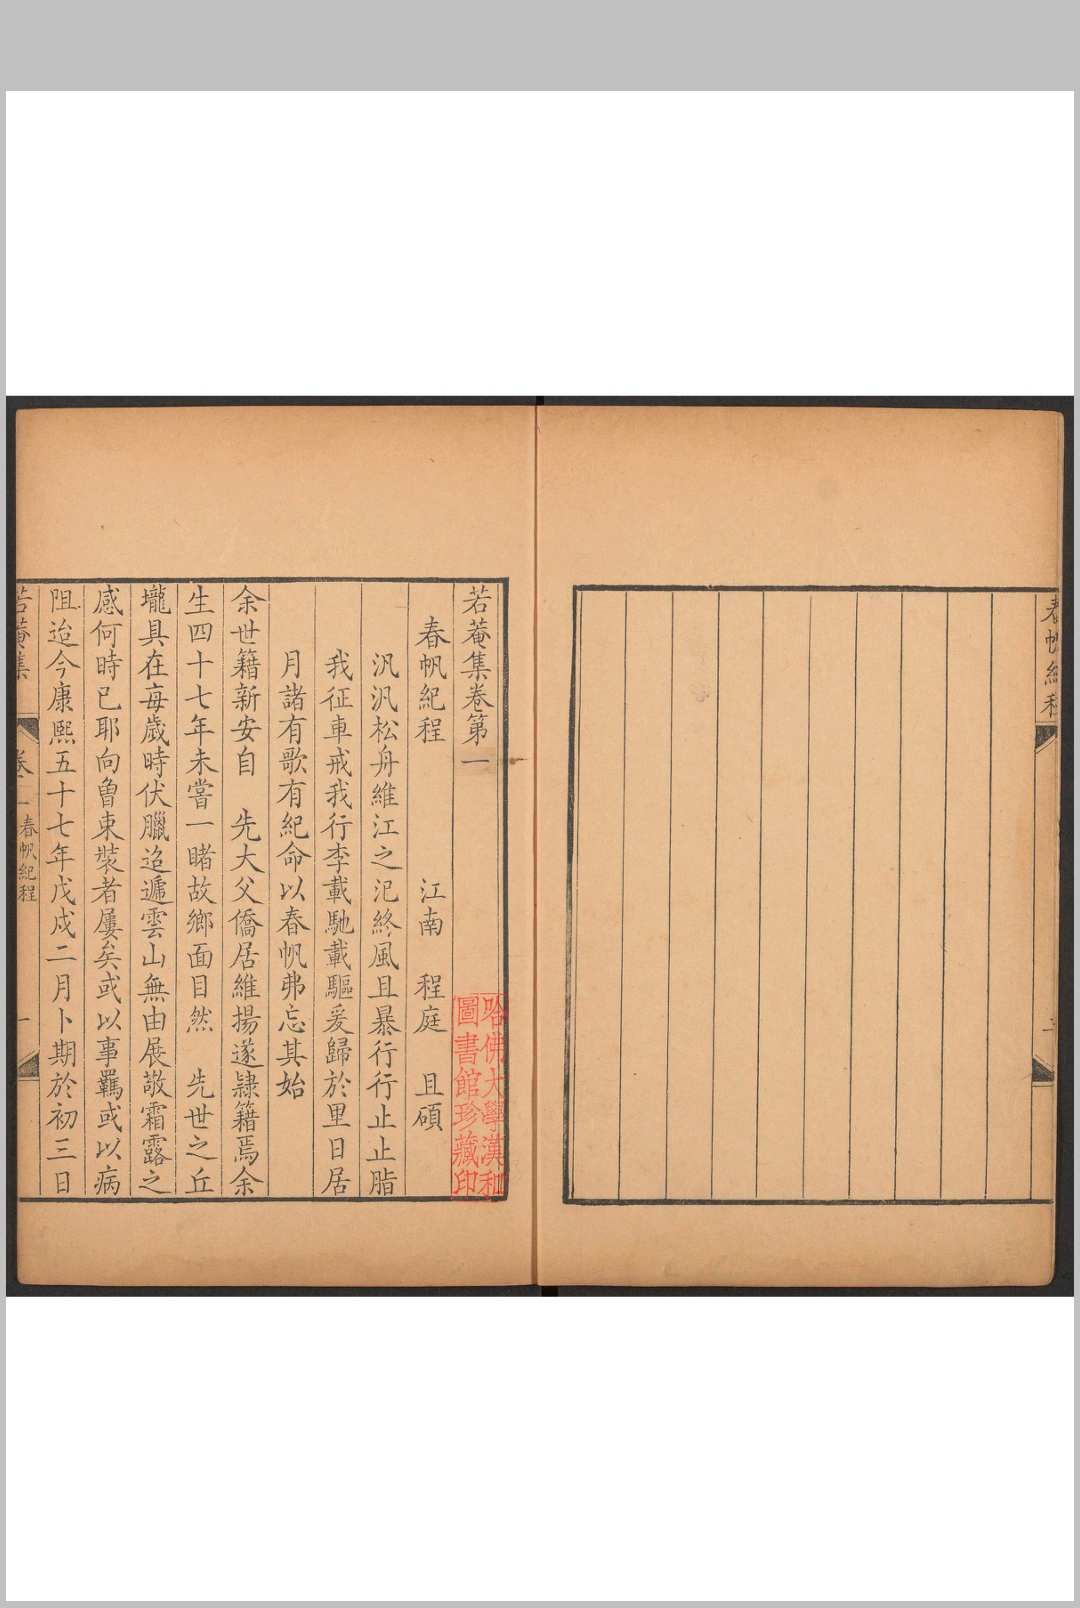 春帆紀程
若菴集卷第一
春帆紀程 江南 程庭 且碩
汎汎松舟維江之汜終風且暴行行止止脂
我征車戒我行李載馳載驅爰歸於里日居
月諸有歌有紀命以春帆弗忘其始
余世籍新安自 先大父僑居維揚遂隸籍焉余
生四十七年未嘗一睹故鄉面目然 先世之丘
壠具在每歲時伏臘迢遞雲山無由展敬霜露之
感何時已耶向曾束裝者屢矣或以事羈或以病
阻迨今康熙五十七年戊戌二月卜期於初三日
若菴集 卷一 春帆紀程 一
哈佛大學漢和
圖書館珍藏印